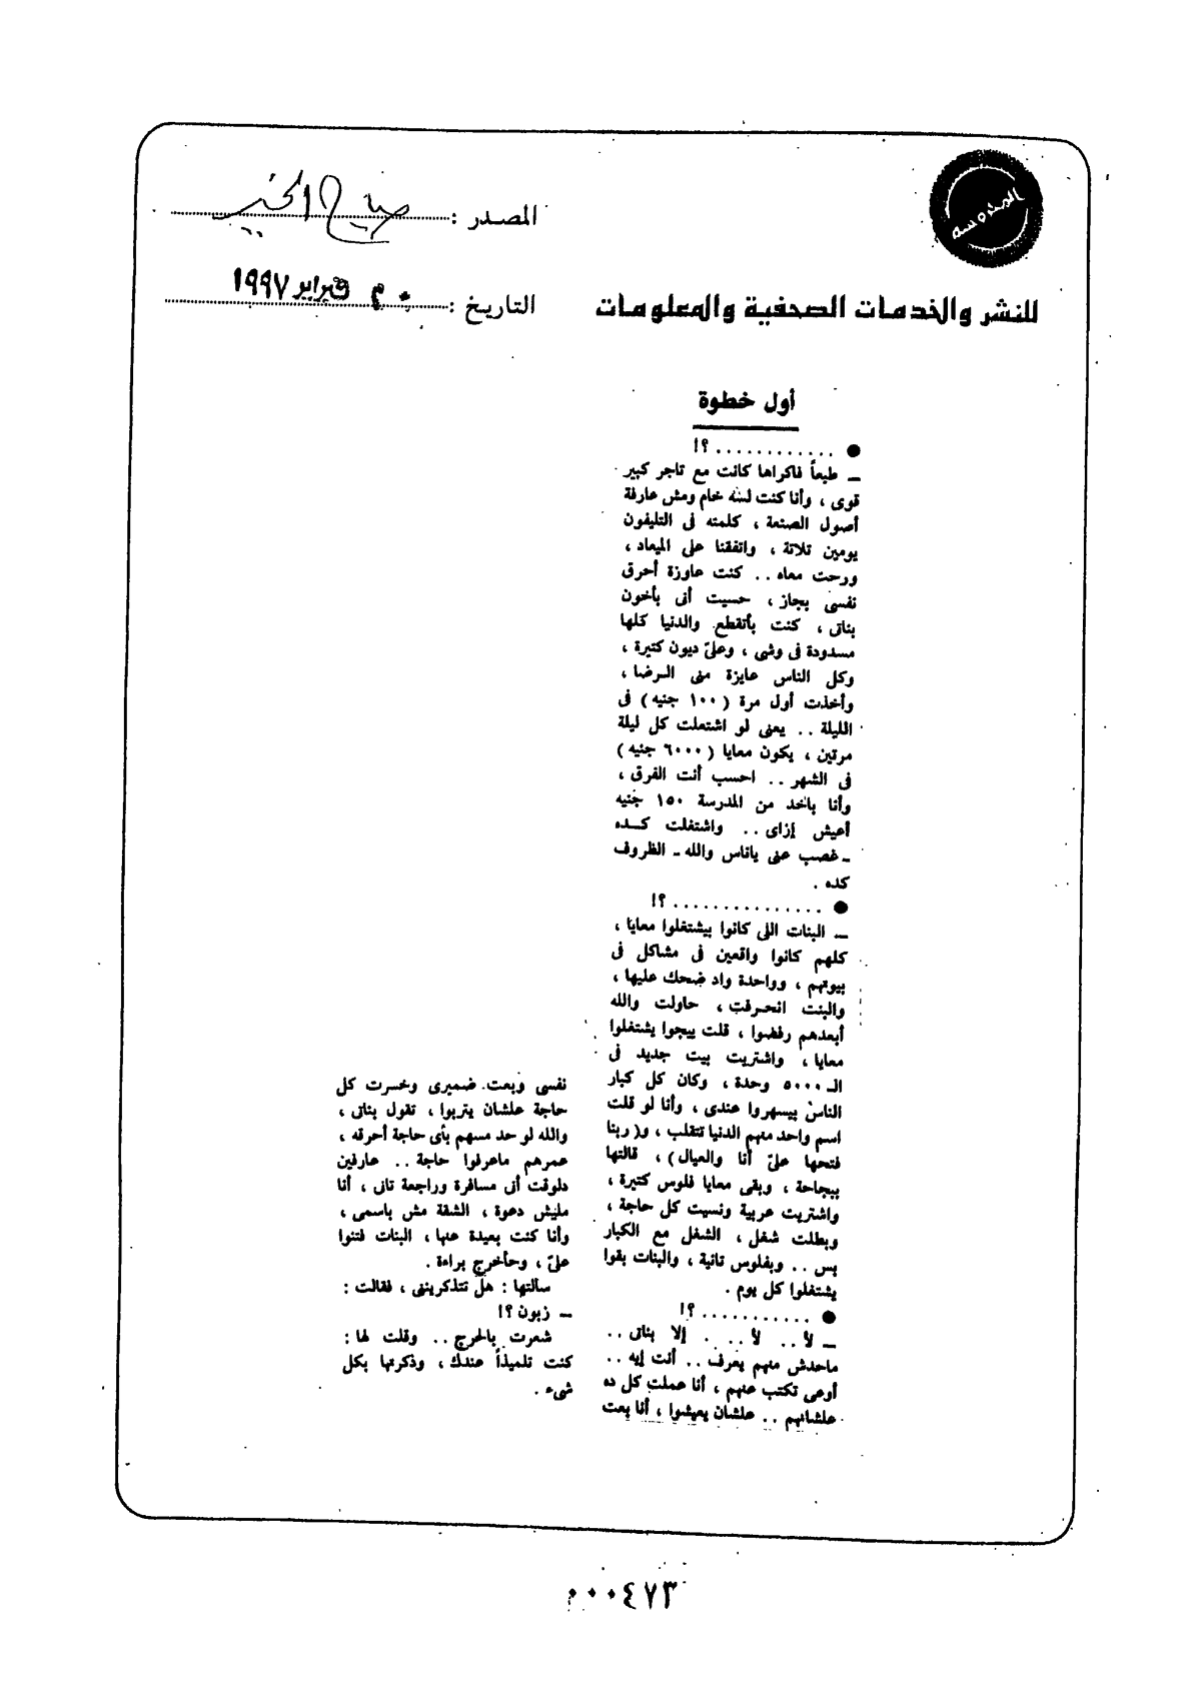 المحروسة
المصدر : صباح الخير
التاريخ : م فبراير ١٩٩٧
للنشر والخدمات الصحفية والمعلومات
أول خطوة
● ............ ؟!
ـ طبعاً فاكراها كانت مع تاجر كبير
قوى ، وأنا كنت لسه خام ومش عارفة
أصول الصنعة ، كلمته فى التليفون
يومين تلاتة ، واتفقنا على الميعاد ،
ورحت معاه .. كنت عاوزة أحرق
نفسى بجاز ، حسيت أنى بأخون
بناتى ، كنت بأتقطع والدنيا كلها
مسدودة فى وشى ، وعلىّ ديون كتيرة ،
وكل الناس عايزة منى الرضا ،
وأخذت أول مرة ( ١٠٠ جنيه ) فى
الليلة .. يعنى لو اشتغلت كل ليلة
مرتين ، يكون معايا ( ٦٠٠٠ جنيه )
فى الشهر .. احسب أنت الفرق ،
وأنا باخد من المدرسة ١٥٠ جنيه
أعيش إزاى .. واشتغلت كـده
ـ غصب عنى ياناس والله ـ الظروف
كده .
● ............... ؟!
ـ البنات اللى كانوا بيشتغلوا معايا ،
كلهم كانوا واقعين فى مشاكل فى
بيوتهم ، وواحدة واد ضحك عليها ،
والبنت انحرفت ، حاولت والله
أبعدهم رفضوا ، قلت ييجوا يشتغلوا
معايا ، واشتريت بيت جديد فى
الـ ٥٠٠٠ وحدة ، وكان كل كبار
الناس بيسهروا عندى ، وأنا لو قلت
اسم واحد منهم الدنيا تتقلب ، و( ربنا
فتحها علىّ أنا والعيال ) ، قالتها
ببجاحة ، وبقى معايا فلوس كتيرة ،
واشتريت عربية ونسيت كل حاجة ،
وبطلت شغل ، الشغل مع الكبار
بس .. وبفلوس تانية ، والبنات بقوا
يشتغلوا كل يوم .
● ........... ؟!
ـ لأ .. لأ .. . إلا بناتى ..
ماحدش منهم يعرف .. أنت إيه ..
أوعى تكتب عنهم ، أنا عملت كل ده
علشانهم .. علشان يعيشوا ، أنا بعت
نفسى وبعت ضميرى وخسرت كل
حاجة علشان يتربوا ، تقول بناتى ،
والله لو حد مسهم بأى حاجة أحرقه ،
عمرهم ماعرفوا حاجة .. عارفين
دلوقت أنى مسافرة وراجعة تانى ، أنا
مليش دعوة ، الشقة مش باسمى ،
وأنا كنت بعيدة عنها ، البنات فتنوا
علىّ ، وحأخرج براءة .
سألتها : هل تتذكرينى ، فقالت :
ـ زبون ؟!
شعرت بالحرج .. وقلت لها :
كنت تلميذاً عندك ، وذكرتها بكل
شىء .
٠٠٠٤٧٣